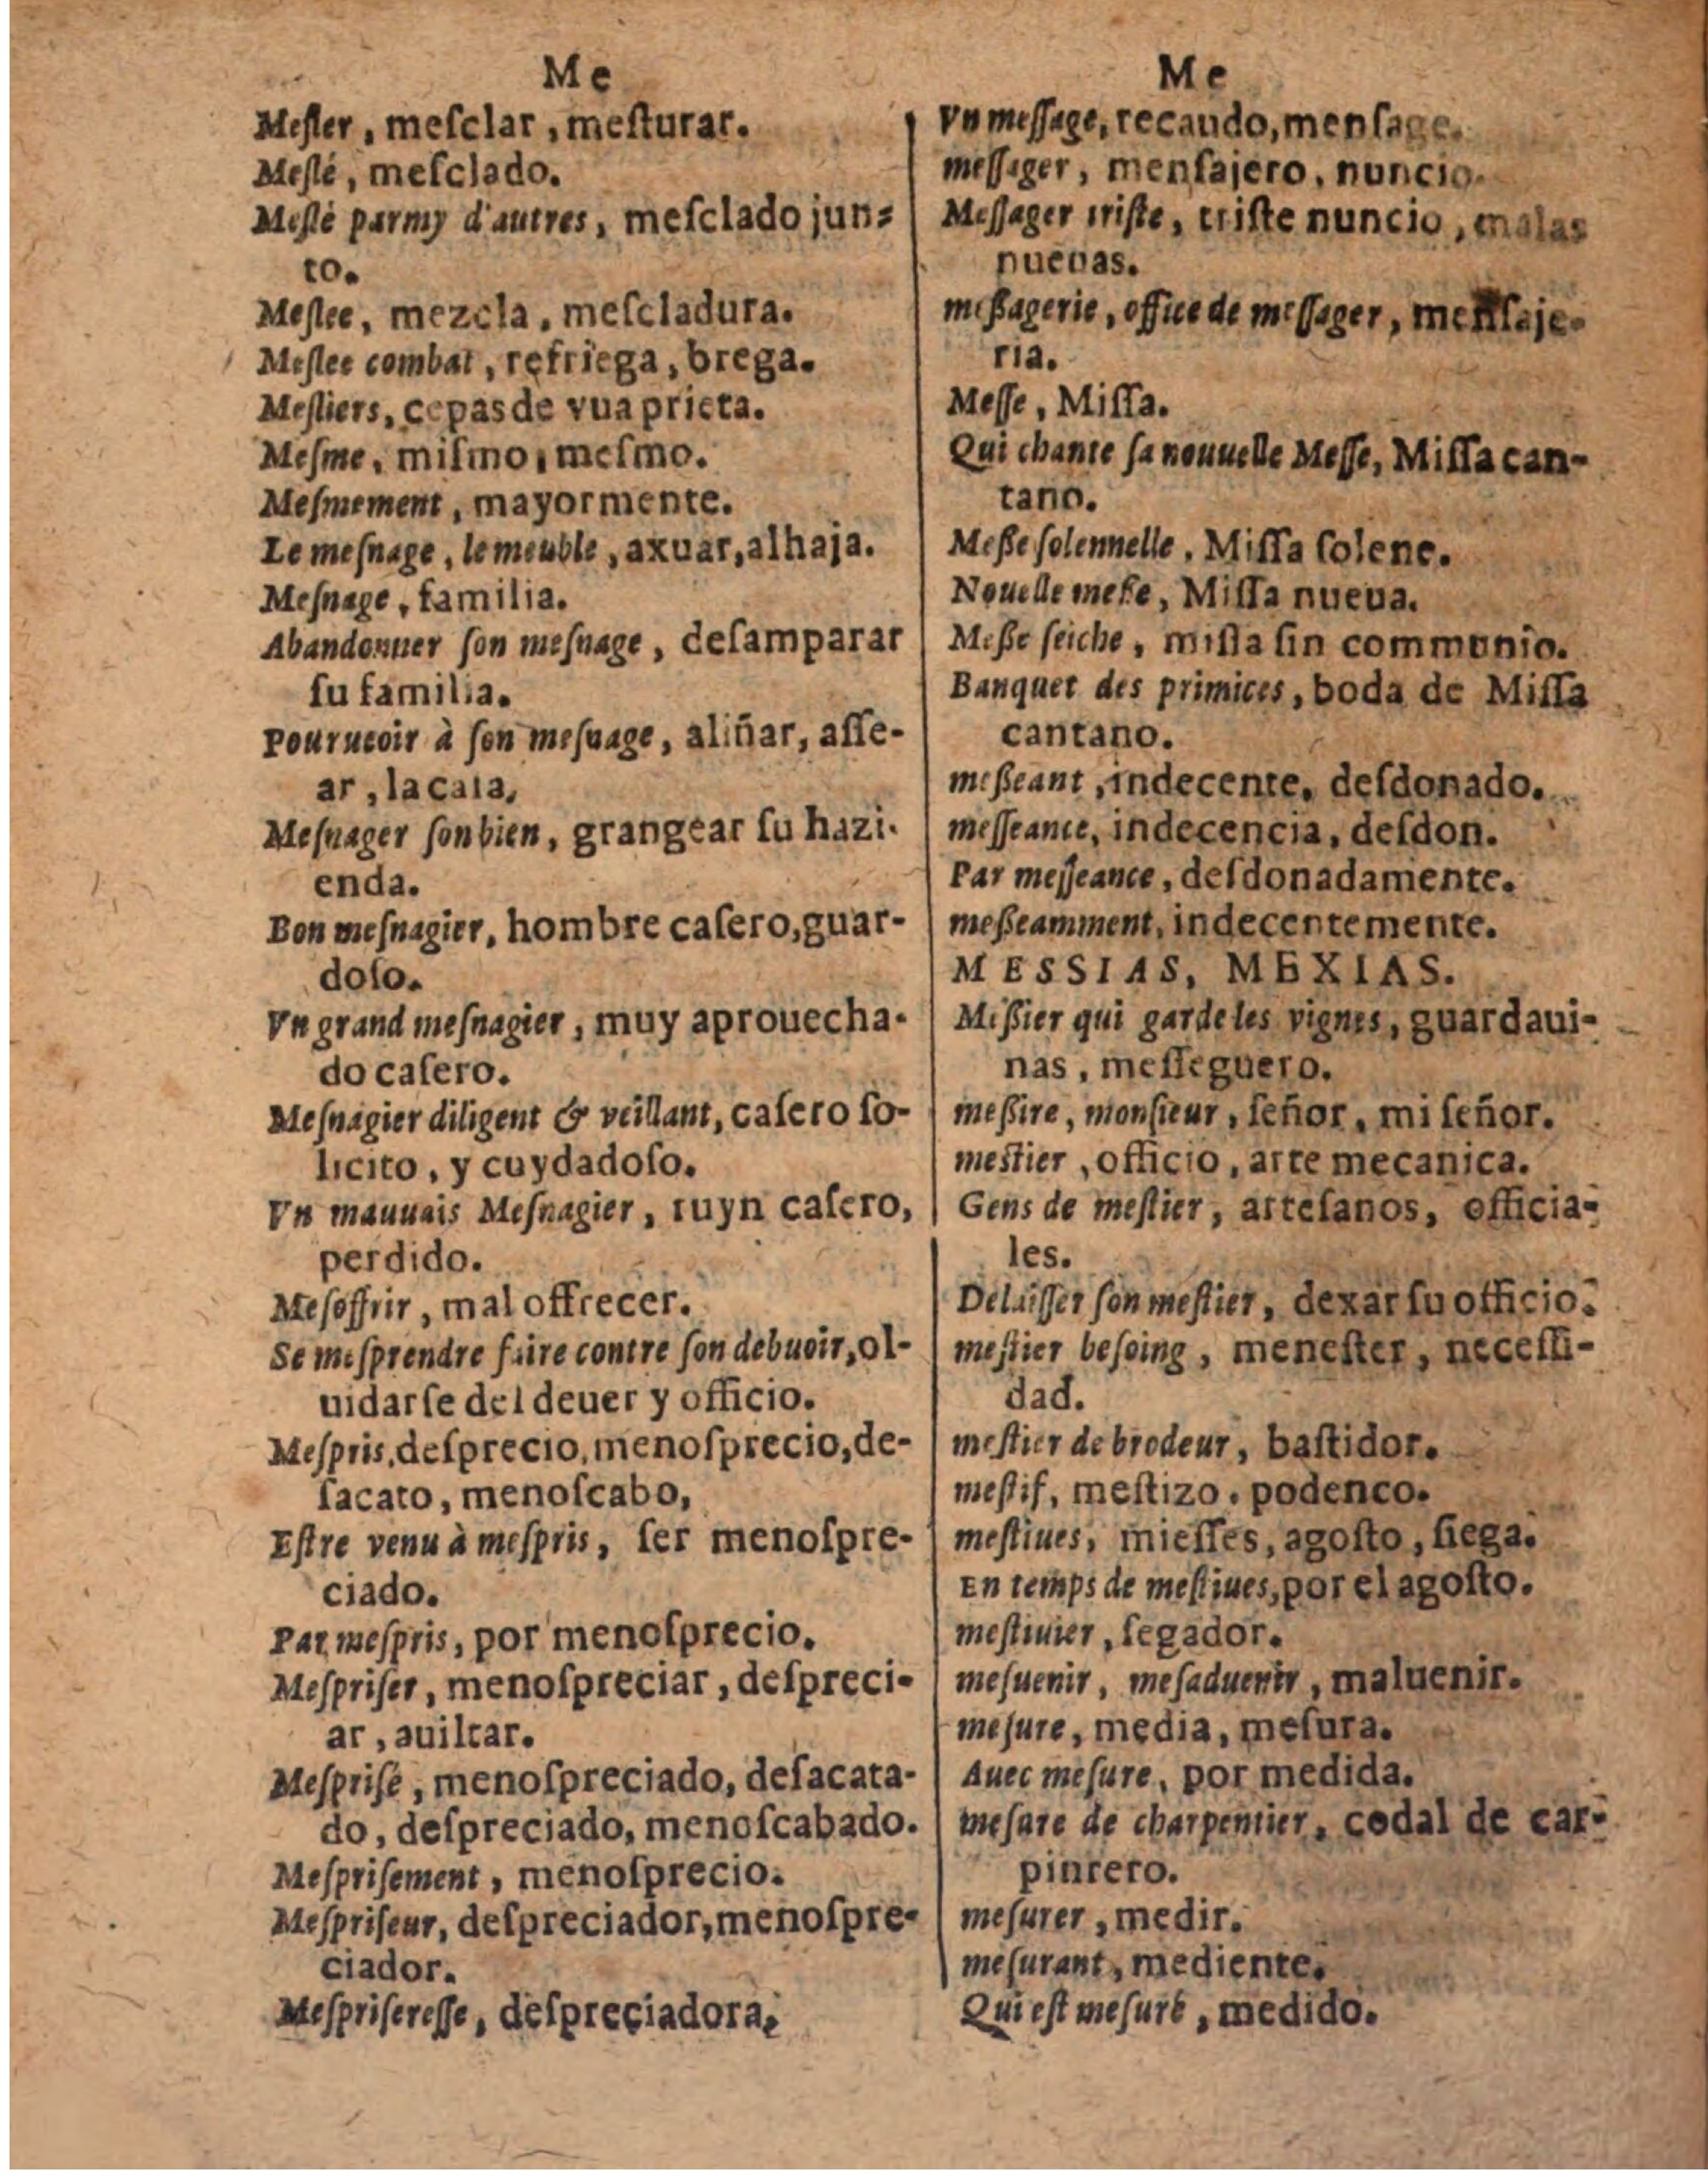 Me
Meſler, meſclar, meſturar.
Meſlé, meſclado.
Meſlé parmy d'autres, meſclado jun-
to.
Meſlee, mezcla, meſcladura.
Meſlee combat, refriega, brega.
Meſliers, cepas de vua prieta.
Meſme, miſmo, meſmo.
Meſmement, mayormente.
Le meſnage, le meuble, axuar, alhaja.
Meſnage, familia.
Abandonner ſon meſnage, deſamparar
ſu familia.
Pourueoir à ſon meſnage, aliñar, aſſe-
ar, la caſa,
Meſnager ſon bien, grangear ſu hazi-
enda.
Bon meſnagier, hombre caſero, guar-
doſo.
Vn grand meſnagier, muy aprouecha-
do caſero.
Meſnagier diligent & veillant, caſero ſo-
licito, y cuydadoſo.
Vn mauuais Meſnagier, ruyn caſero,
perdido.
Meſoffrir, mal offrecer.
Se meſprendre faire contre ſon debuoir, ol-
uidarſe del deuer y officio.
Meſpris, deſprecio, menoſprecio, de-
ſacato, menoſcabo,
Eſtre venu à meſpris, ſer menoſpre-
ciado.
Par meſpris, por menoſprecio.
Meſpriſer, menoſpreciar, deſpreci-
ar, auiltar.
Meſpriſé, menoſpreciado, deſacata-
do, deſpreciado, menoſcabado.
Meſpriſement, menoſprecio.
Meſpriſeur, deſpreciador, menoſpre-
ciador.
Meſpriſereſſe, deſpreciadora,
Me
Vn meſſage, recaudo, menſage.
meſſager, menſajero, nuncio.
Meſſager triſte, triſte nuncio, malas
nueuas.
meßagerie, office de meſſager, menſaje-
ria.
Meſſe, Miſſa.
Qui chante ſa nouuelle Meſſe, Miſſa can-
tano.
Meße ſolennelle, Miſſa ſolene.
Nouelle meße, Miſſa nueua.
Meße ſeiche, miſſa ſin communio.
Banquet des primices, boda de Miſſa
cantano.
meßeant, indecente, deſdonado.
meſſeance, indecencia, deſdon.
Par meſſeance, deſdonadamente.
meßeamment, indecentemente.
MESSIAS, MEXIAS.
Meßier qui garde les vignes, guardaui-
nas, meſſeguero.
meßire, monſieur, ſeñor, mi ſeñor.
meſtier, officio, arte mecanica.
Gens de meſtier, arteſanos, officia-
les.
Delaiſſer ſon meſtier, dexar ſu officio.
meſtier beſoing, meneſter, neceſſi-
dad.
meſtier de brodeur, baſtidor.
meſtif, meſtizo, podenco.
meſtiues, mieſſes, agoſto, ſiega.
En temps de meſtiues, por el agoſto.
meſtiuier, ſegador.
meſuenir, meſaduenir, maluenir.
meſure, media, meſura.
Auec meſure, por medida.
meſure de charpentier, codal de car-
pintero.
meſurer, medir.
meſurant, mediente.
Qui eſt meſuré, medido.